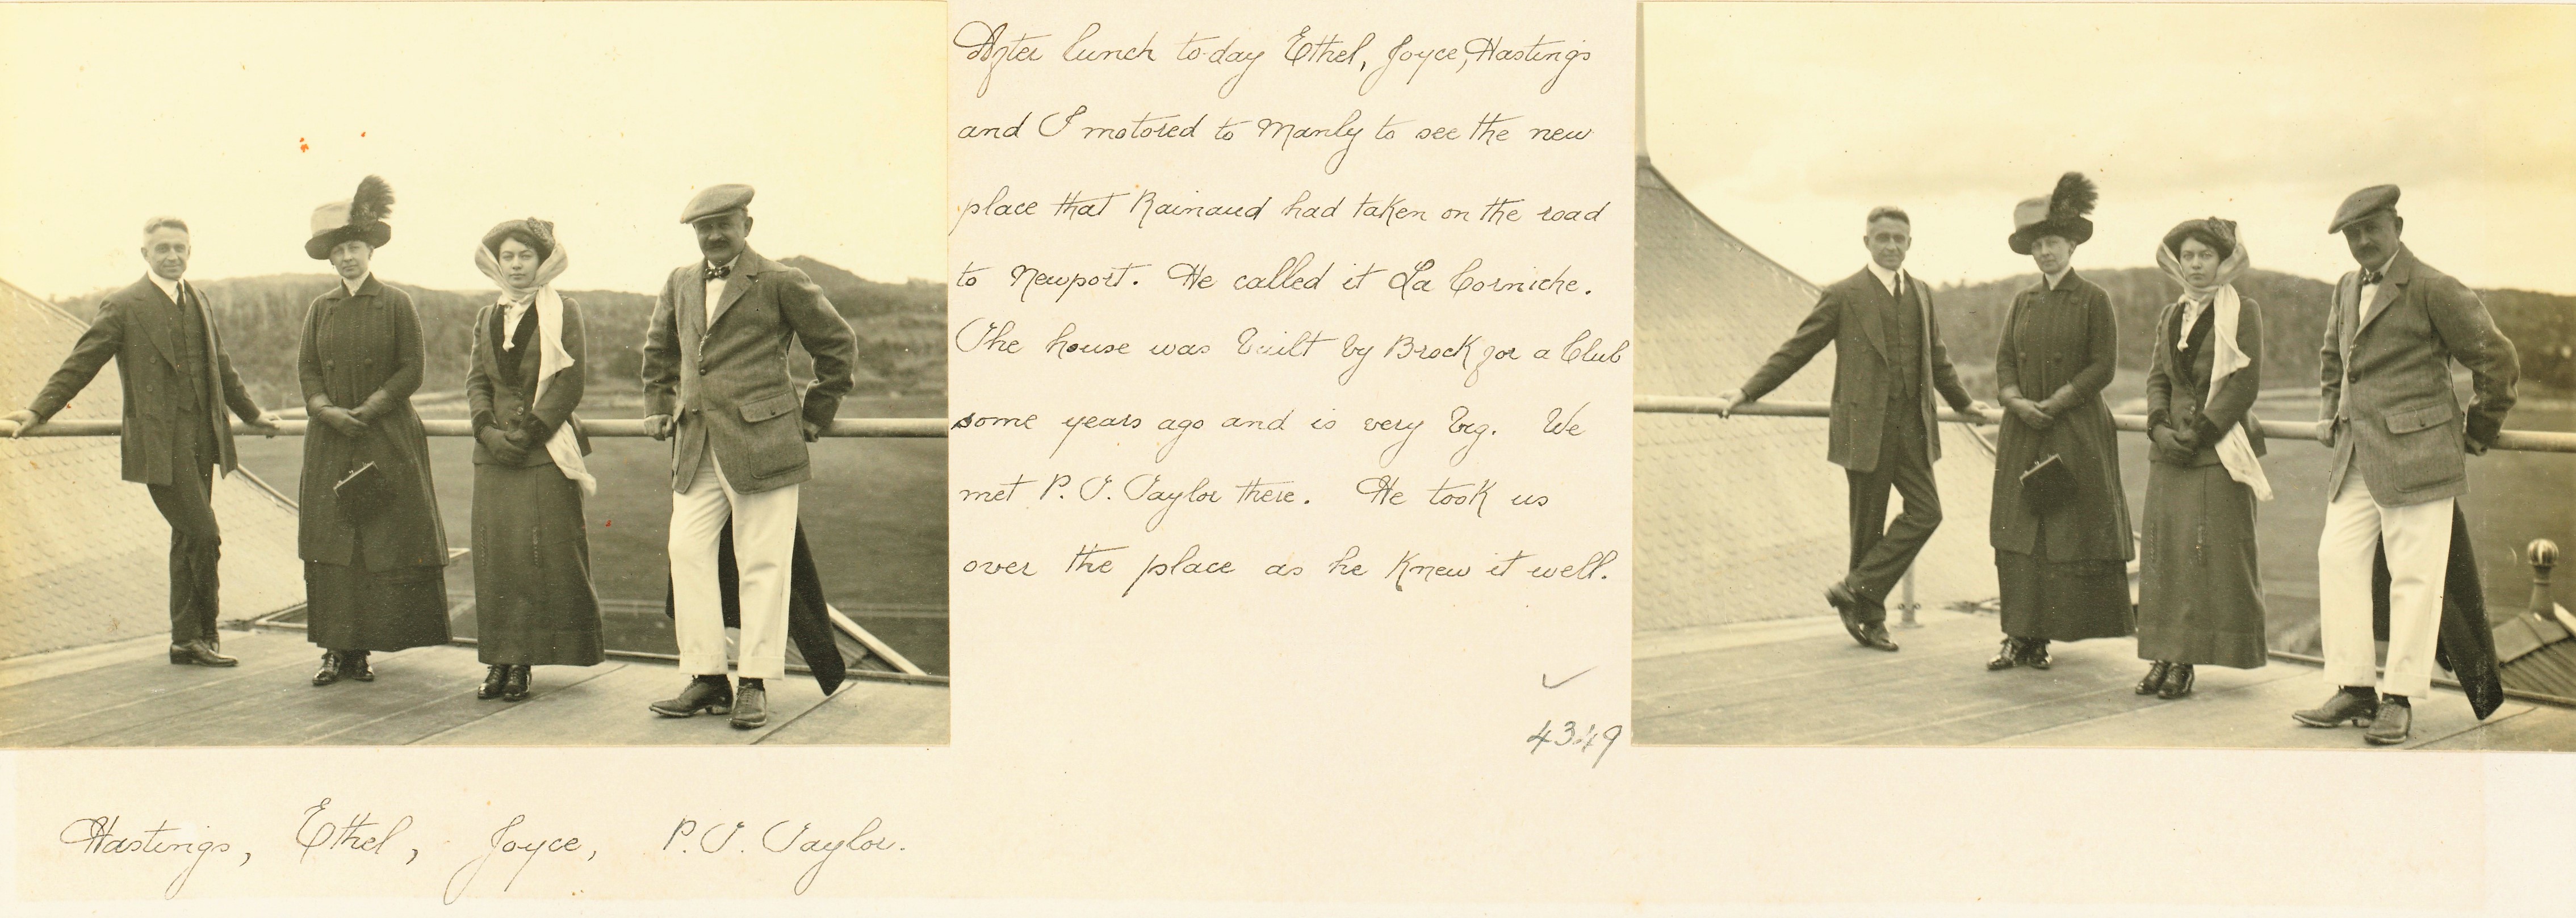 After lunch to-day Ethel, Joyce, Hastings
and I motored to Manly to see the new
place that Rainaud had taken on the road
to Newport. He called it La Corniche.
The house was built by Brock for a Club
some years ago and is very big. We
met P. T. Taylor there. He took us
over the place as he knew it well.
4349
Hastings, Ethel, Joyce, P. T. Taylor.